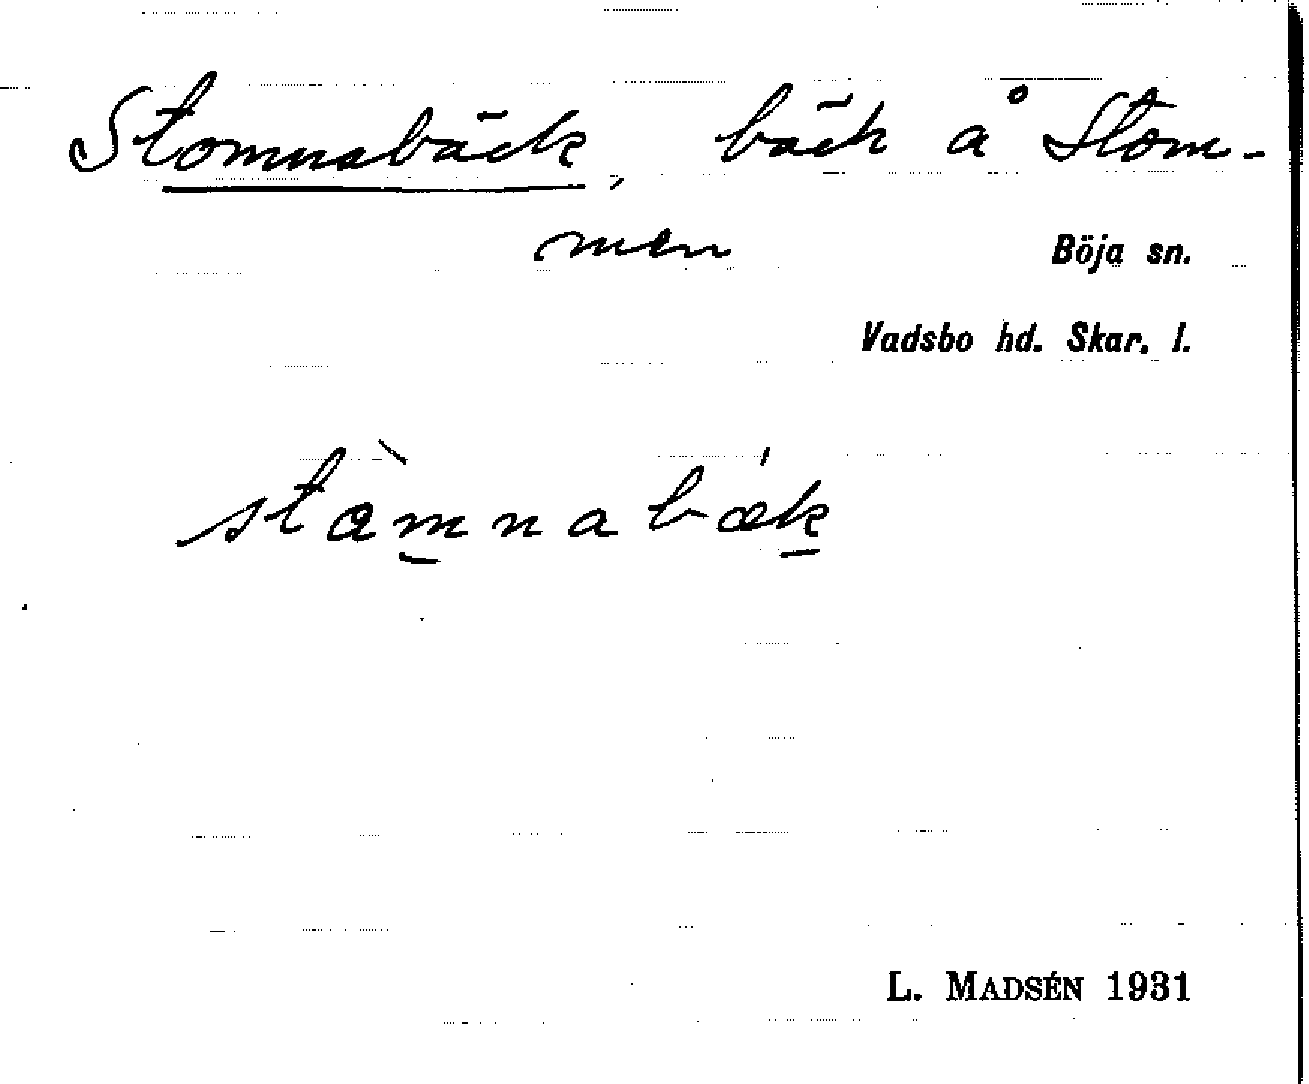 Stomnabäck, bäck å Stom-
men
Böja sn.
Vadsbo hd. Skar. l.
stàmnabǽk
L. MADSÉN 1931